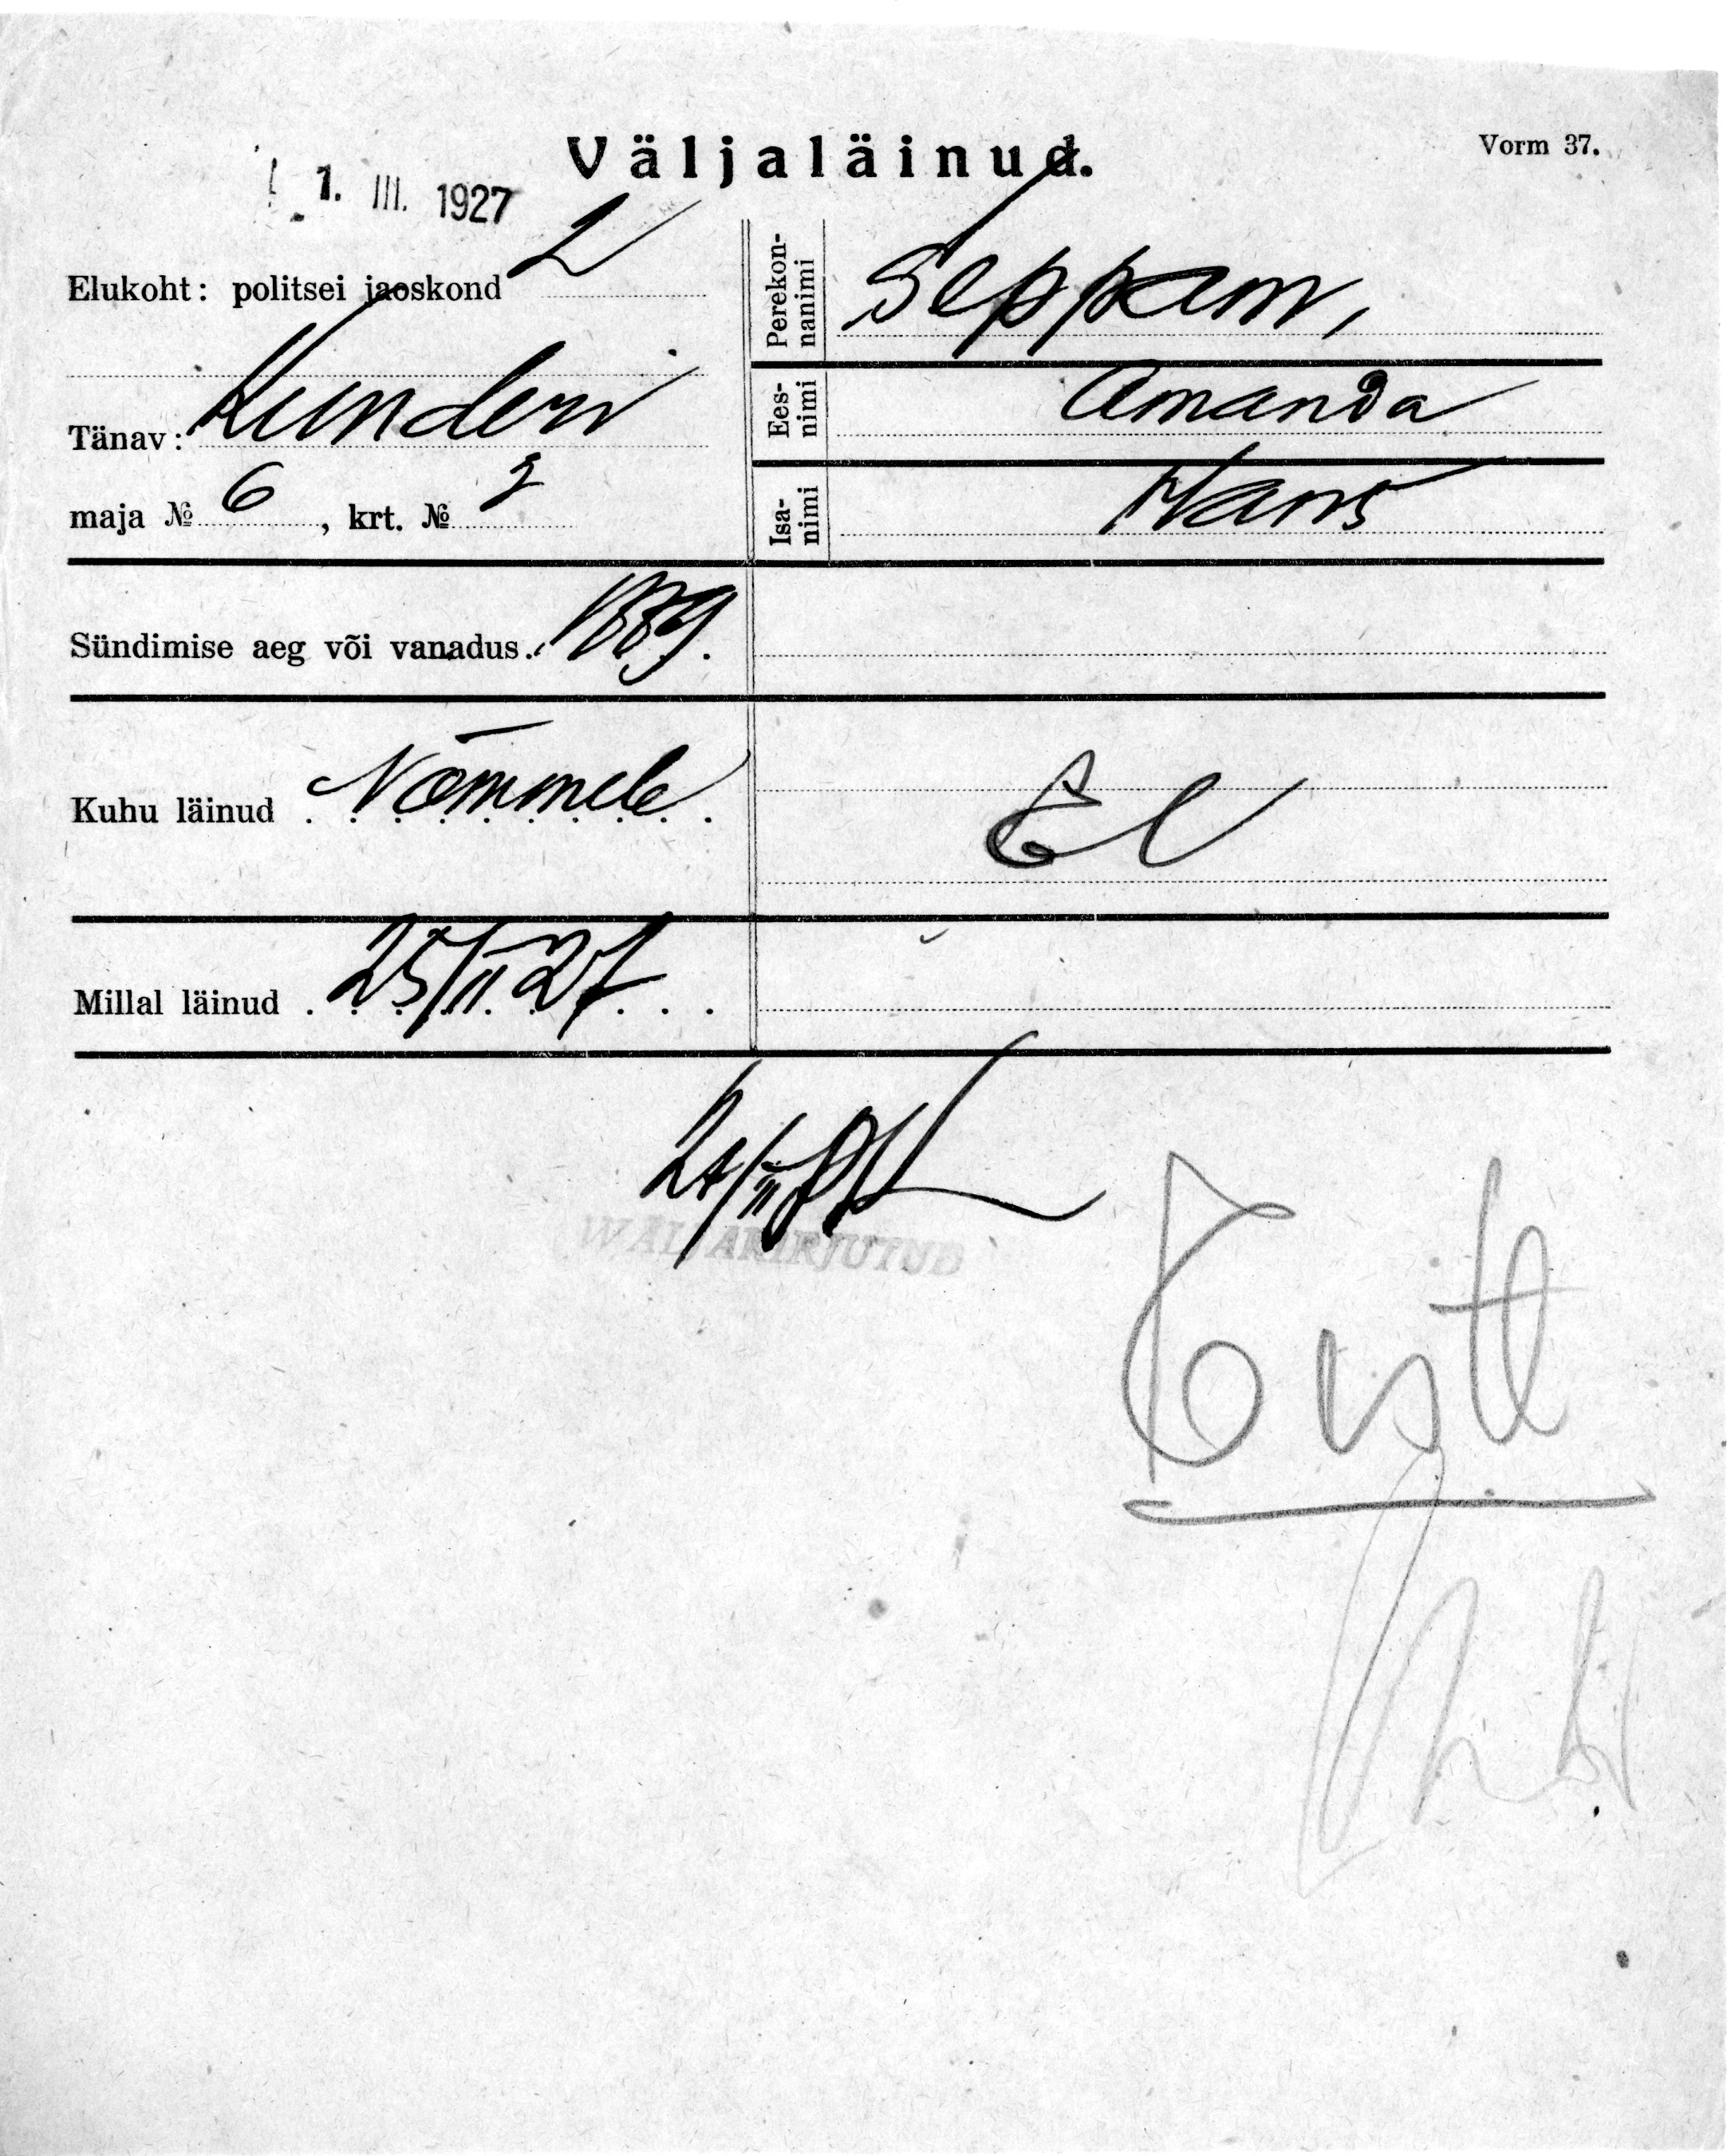 Väljaläinud.
Vorm 37.
1. III. 1927
Elukoht: politsei jaoskond 2
Tänav: Kunderi
maja № 6, krt. № 2
Perekon-
nanimi
Seppam,
Ees-
nimi
Amanda
Isa-
nimi
Hans
Sündimise aeg või vanadus. 1889.
Kuhu läinud Nõmmele
Millal läinud 25/II 27
WÄLJAKIRJUTUD